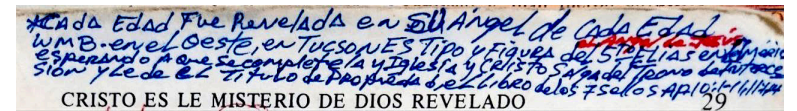 *Cada Edad Fue Revelada en SU Angel de Cada Edad
WMB. en el Oeste, en Tucson ES Tipo y Figura del 5º ELIAS en
esperando a que se complete la Iglesia y CRISTO Salga del Trono de
sión y le de el Titulo de Propiedad, el LIBRO de los 7 Sellos
CRISTO ES LE MISTERIO DE DIOS REVELADO 29